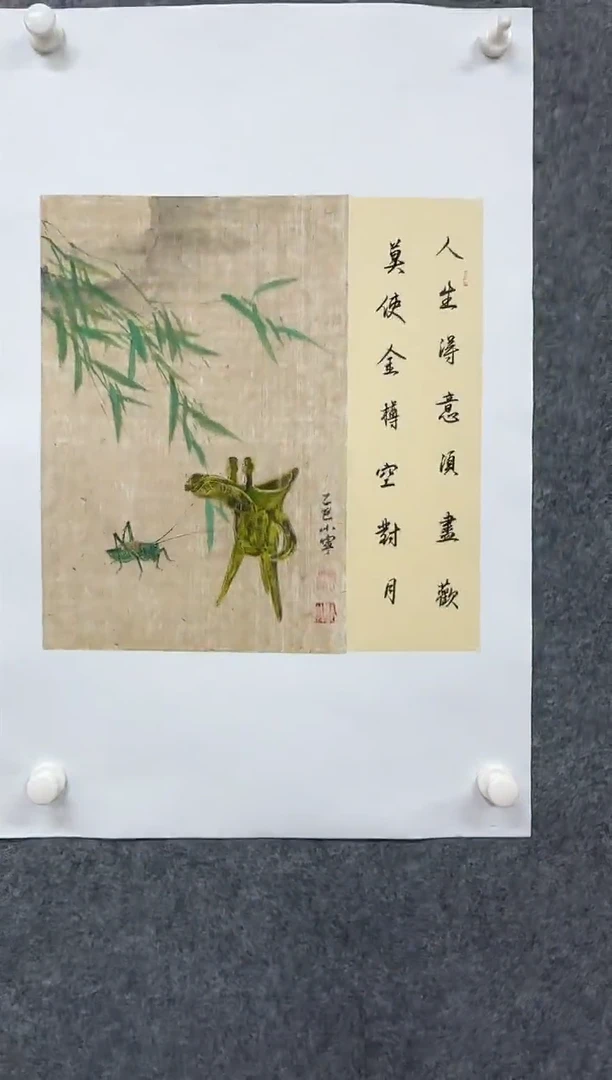 人生得意須盡歡
莫使金樽空對月
乙巳小寧